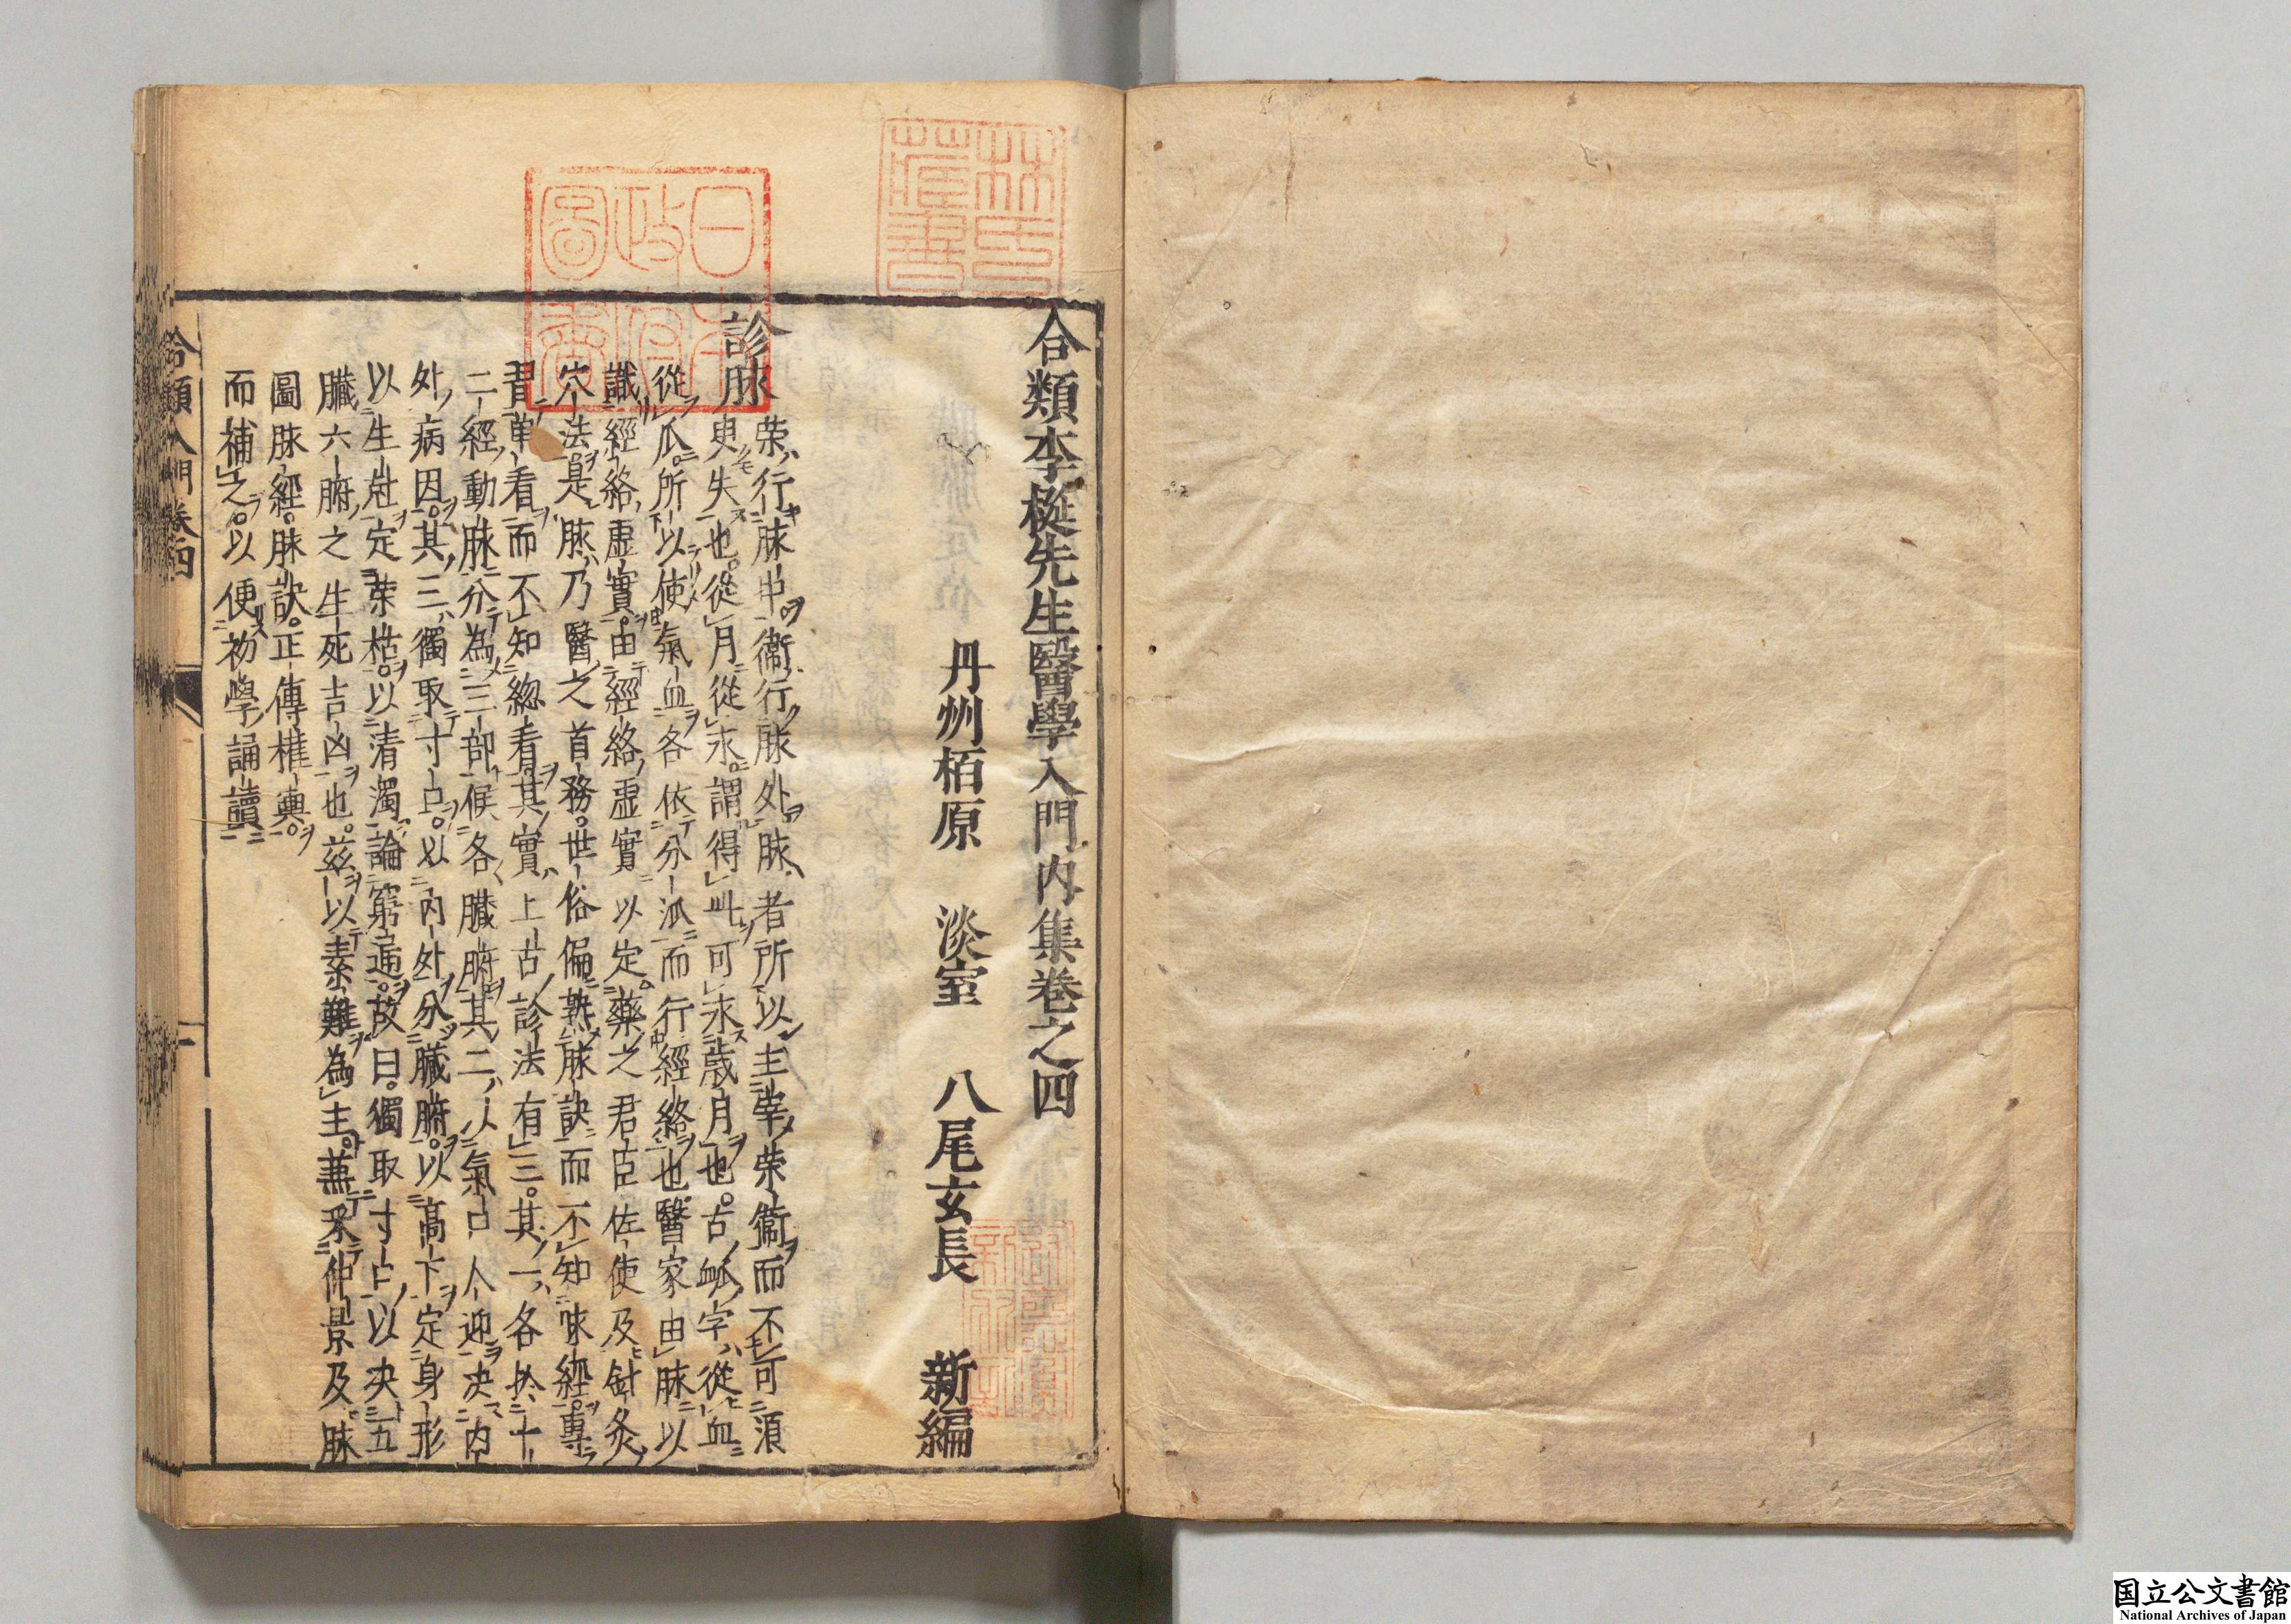 合類李梴先生醫學入門内集卷之四
丹州栢原 淡室 八尾玄長 新編
診脉
榮行脉中衞行脉外脉者所以主宰榮衞而不可須
臾失也從月從永謂得此可永歲月也古䘑字從血
從𠂢所以使氣血各依分派而行經絡也醫家由脉以
識經絡虛實由經絡虛實以定藥之君臣佐使及針灸
穴法是脉乃醫之首務世俗偏熟脉訣而不知脉經專
胃單看而不知總看其實上古診法有三其一各於十
二經動脉分為三部候各臟腑其二以氣口人迎决内
外病因其三獨取寸口以内外分臟腑以高下定身形
以生尅定榮枯以清濁論窮通故曰獨取寸口以决五
臟六腑之生死吉凶也茲以素難為主兼采仲景及脉
圖脉經脉訣正傳權輿
而補之以便初學誦讀
合類入門卷四
一
林氏藏書
日本政府圖書
国立公文書館
National Archives of Japan